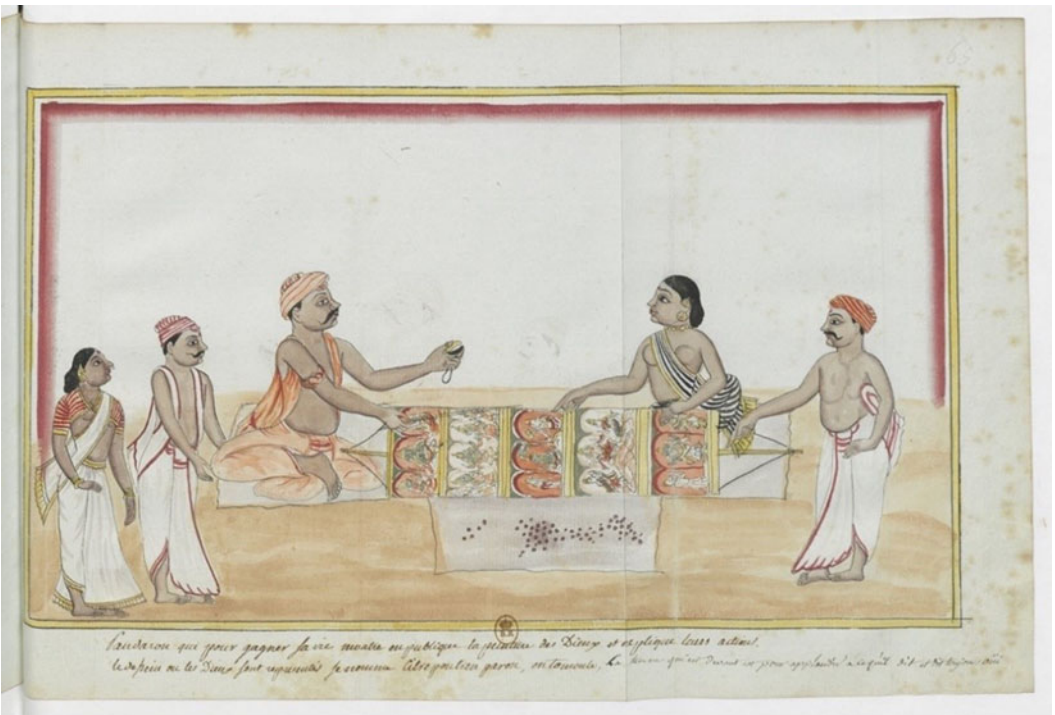 65
Pandaron qui pour gagner sa vie montre en publique la peinture des Dieux et explique leurs actions.
le dessein ou les Dieux sont representés se nomme en tamoule, La femme qui est devant est pour applaudir a ce qu'il dit et dit toujours